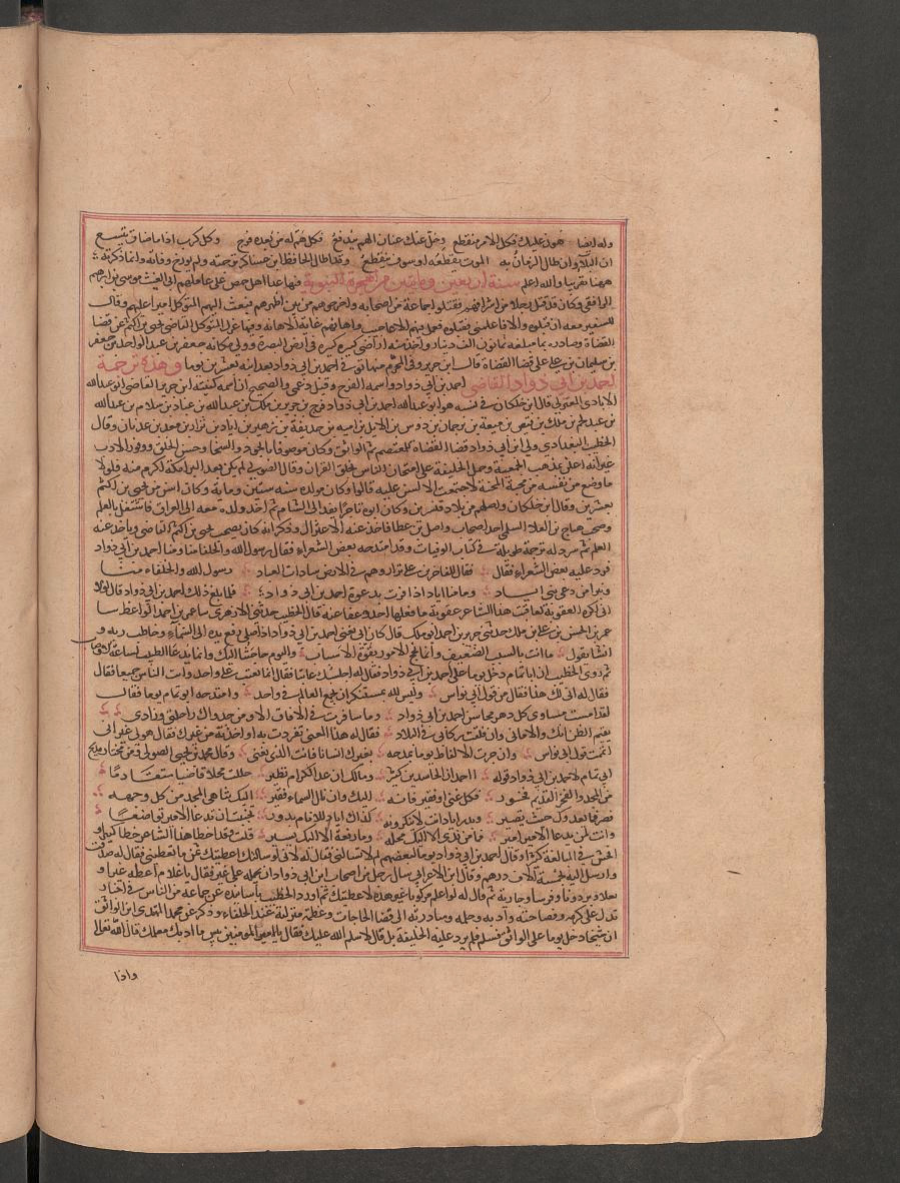 وله ايضا هون عليك فكل الامر منقطع وخل عنك عنان الهم يندفع فكل هم له من بعده فرج وكل كرب اذا ما ضاق يتسع
ان البلاء وان طال الزمان به الموت يقطعه او سوف ينقطع وقد اطال الحافظ ابن عساكر ترجمته ولم يورخ وفاته وانما ذكرته
ههنا تقريبا والله اعلم سنة اربعين وماتين من الهجرة النبوية فيها عدا اهل حمص على عاملهم ابي الغيث موسى بن ابرهيم
الرافقي وكان قد قتل رجلا من اشرافهم فقتلوا جماعة من اصحابه واخرجوهم من بين اظهرهم فبعث اليهم المتوكل اميرا عليهم وقال
للسفير معه ان قبلوه والا فاعلمني فقبلوه فعمل فيهم الاعاجيب واهانهم غاية الاهانة وفيها عزل المتوكل القاضي يحيى بن اكثم عن قضا
القضاة وصادره بما مبلغه ثمانون الف دينار واخذ منه اراضي كثيرة في ارض البصرة وولى مكانه جعفر بن عبد الواحد بن جعفر
بن سليمان بن علي على قضا القضاة قال ابن جرير وفي المحرم منها توفي احمد بن ابي دواد بعد ابنه بعشرين يوما وهذه ترجمة
احمد بن ابي دواد القاضي احمد بن ابي دواد واسمه الفرج وقيل دعمي والصحيح ان اسمه كنيته ابن جرير القاضي ابو عبد الله
الايادي المعتزلي قال ابن خلكان في نسبه هو ابو عبد الله احمد بن ابي دواد فرج بن جرير بن ملك بن عبد الله بن عباد بن سلام بن عبد الله
بن عبد لخم بن ملك بن قنص بن منعة بن برجان بن دوس بن الايل بن امية بن حذيفة بن زهير بن اياد بن نزار بن معد بن عدنان وقال
الخطيب البغدادي ولي ابن ابي دواد قضا القضاة للمعتصم ثم الواثق وكان موصوفا بالجود والسخا وحسن الخلق ووفور الادب
غير انه اعلن بمذهب الجهمية وحمل الخليفة على امتحان الناس بخلق القران وقال الصولي لم يكن بعد البرامكة اكرم منه فلولا
ما وضع من نفسه من محبة المحنة لاجتمعت الالسن عليه قالوا وكان مولده سنة ستين ومايه وكان اسن من يحيى بن اكثم
بعشرين وقال ابن خلكان واصلهم من بلاد قنسرين وكان ابوه تاجرا يفد الى الشام ثم اخذ ولده معه الى العراق فاشتغل بالعلم
وصحب هياج بن العلا السلمي احد اصحاب واصل بن عطا فاخذ عنه الاعتزال وذكر انه كان يصحب يحيى بن اكثم القاضي وياخذ عنه
العلم ثم سرد له ترجمة طويلة في كتاب الوفيات وقد امتدحه بعض الشعراء فقال رسول الله والخلفا منا ومنا احمد بن ابي دواد
فرد عليه بعض الشعراء فقال فقل للفاخرين على نزار وهم في الارض سادات العباد رسول الله والخلفاء منا
ونبرا من دعي بني اياد وما منا اياد اذا اقرت بدعوة احمد بن ابي دواد فلما بلغ ذلك احمد بن ابي دواد قال لولا
اني اكره العقوبة لعاقبت هذا الشاعر عقوبة ما فعلها احد وعفا عنه قال الخطيب حدثني الازهري ثنا عمر بن احمد الواعظ سا
عمر بن الحسن بن علي بن ملك حدثني جرير بن احمد ابو ملك قال كان ابي يعني احمد بن ابي دواد اذا صلى رفع يده الى السماء وخاطب ربه و
انشا يقول ما انت بالسبب الضعيف وانما نجح الامور بقوة الاسباب واليوم حاجتنا اليك وانما يدعا الطبيب لساعة الاوصاب
ثم روى الخطيب ان ابا تمام دخل يوما على احمد بن ابي دواد فقال له احسبك عاتبا فقال انما يعتب على واحد وانت الناس جميعا فقال
فقال له انى لك هذا فقال من قول ابي نواس وليس لله بمستنكر ان يجمع العالم في واحد وامتدحه ابو تمام يوما فقال
لقد انست مساوي كل دهر محاسن احمد بن ابي دواد وما سافرت في الافاق الا ومن جدواك راحلتي وزادي
يقيم الظن عندك والاماني وان قلقت ركابي في البلاد فقال له هذا المعنى تفردت به او اخذته من غيرك فقال هو لي غير اني
المحت بقول ابي نواس وان جرت الالفاظ يوما بمدحه لغيرك انسانا فانت الذي نعني وقال محمد بن يحيى الصولي ومن مختار مديح
ابي تمام لاحمد بن ابي دواد قوله ااحمد ان الحاسدين كثير ومالك ان عد الكرام نظير حللت محلا قاضيا متقادما
من المجد والفخر القديم فخور فكل غني او فقير فانه اليك وان نال السماء فقير اليك تناهى المجد من كل وجهه
يصير فما يعدوك حيث يصير وبدر اياد انت لا ينكرونه كذاك اياد للانام بدور تجنبت ان تدعا الامير تواضعا
وانت لمن يدعا الامير امير فما من ندى الا اليك محله وما رفعة الا اليك تسير قلت قد اخطا هذا الشاعر خطا كبيرا و
افحش في المبالغة كثيرا وقال احمد بن ابي دواد يوما لبعضهم لم لا تسالني فقال له لاني لو سالتك اعطيتك ثمن ما تعطيني فقال له صدقت
وارسل اليه بخمسة الاف درهم وقال ابن الاعرابي سال رجل من اصحاب ابن ابي دواد ان يحمله على عير فقال يا غلام اعطه عيرا و
بغلا وبرذونا وفرسا وجارية ثم قال له لو اعلم مركوبا غير هذه لاعطيتك ثم اورد الخطيب باسانيده عن جماعة من الناس في اخبار
تدل على كرمه وفصاحته وادبه وحلمه ومبادرته الى قضا الحاجات وعظم منزلته عند الخلفاء وذكر عن محمد المهتدي ابن الواثق
ان شيخا دخل يوما على الواثق فسلم فلم يرد عليه الخليفة بل قال لا سلم الله عليك فقال يا امير المومنين بيس ما ادبك معلمك قال الله تعالى
واذا